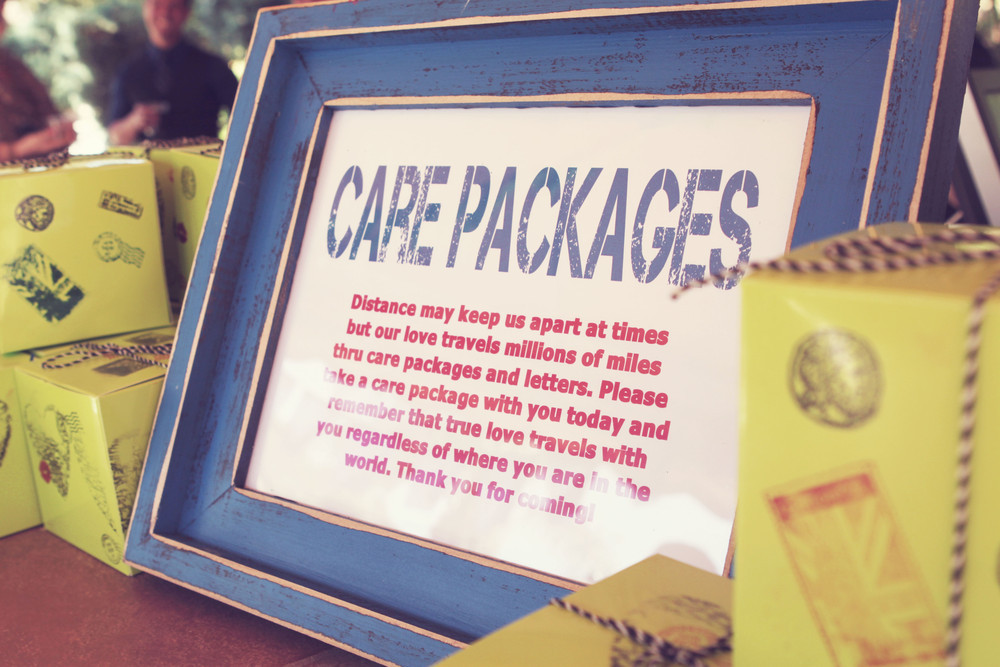 CARE PACKAGES
Distance may keep us apart at times
but our love travels millions of miles
thru care packages and letters. Please
take a care package with you today and
remember that true love travels with
you regardless of where you are in the
world. Thank you for coming!